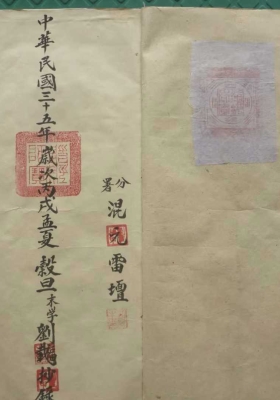 分署混元雷壇
中華民國三十五年歲次丙戌孟夏穀旦末学劉